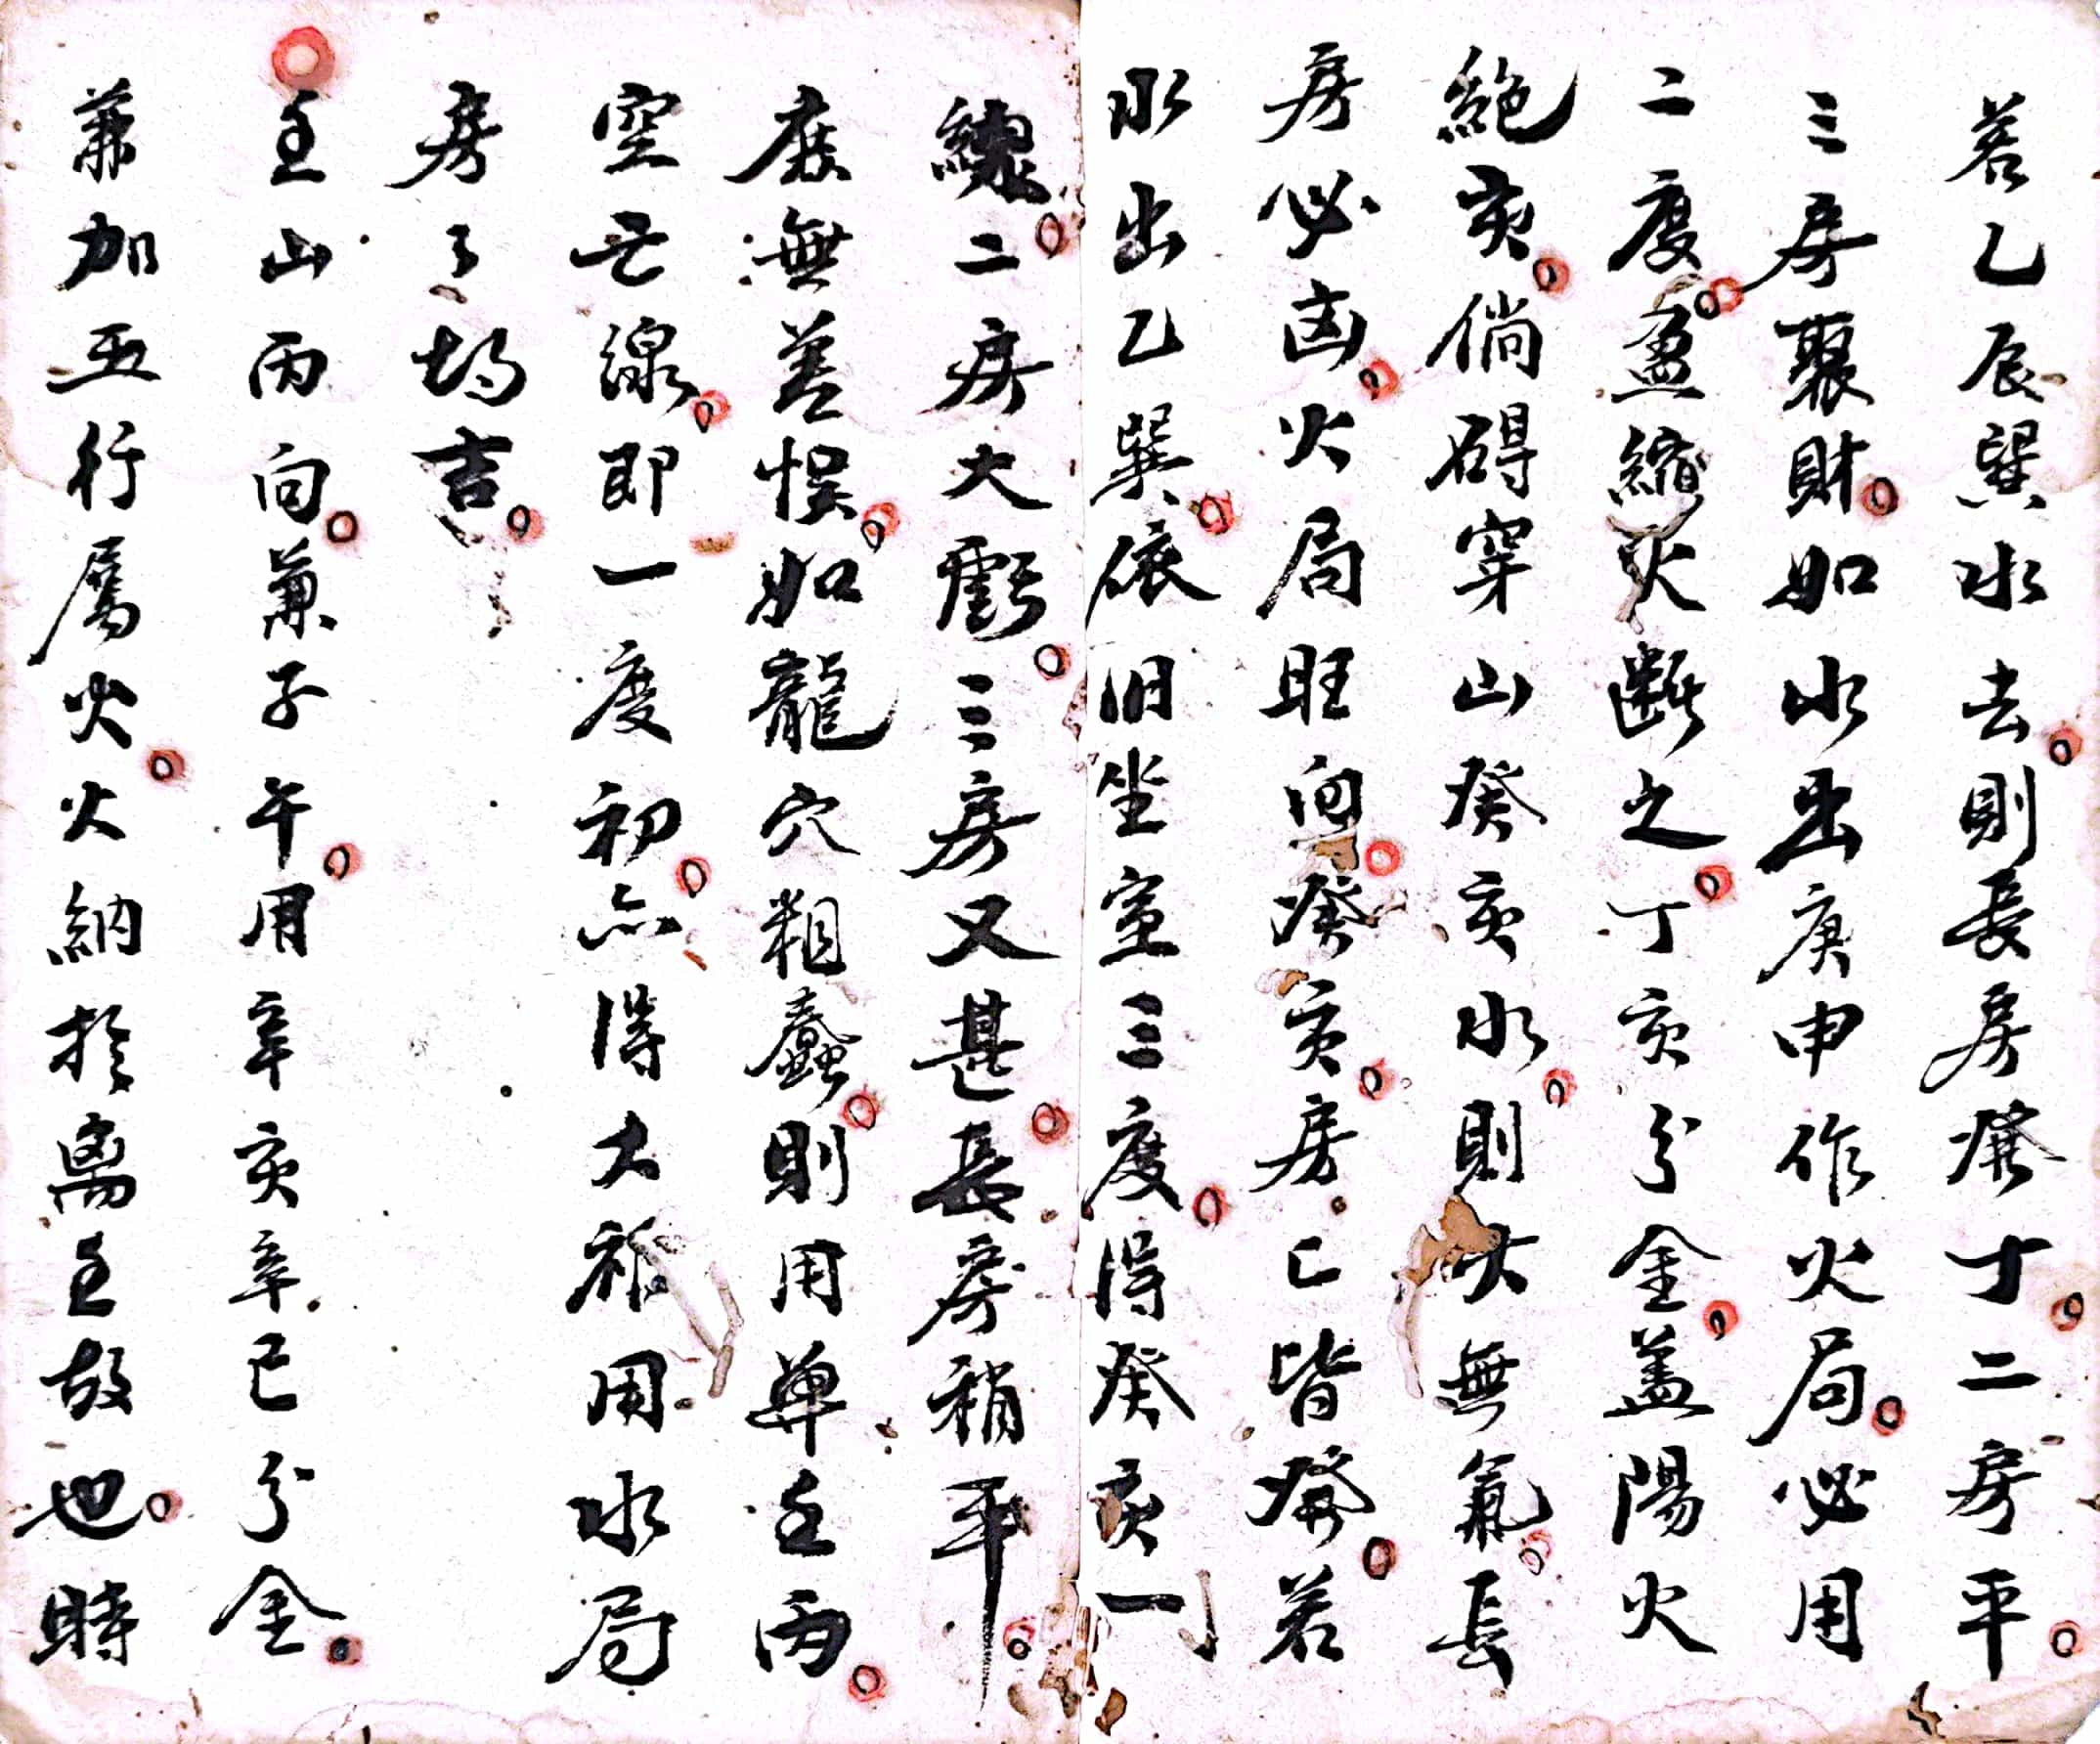 若乙辰巽水去則長房發丁二房平
三房聚財如水出庚申作火局必用
二度盈縮火断之丁亥分金盖陽火
絕亥倘碍穿山癸亥水則火無氣長
房必凶火局旺向癸亥房亡皆發若
水出乙巽依旧坐室三度得癸亥一
線二房大虧三房又甚長房稍平
庶無差悞如龍穴粗蠢則用單壬丙
空亡線即一度初亦得大旺用水局
房了均吉
壬山丙向兼子午用辛亥辛巳分金
兼加五行屬火火納扵离壬故也時